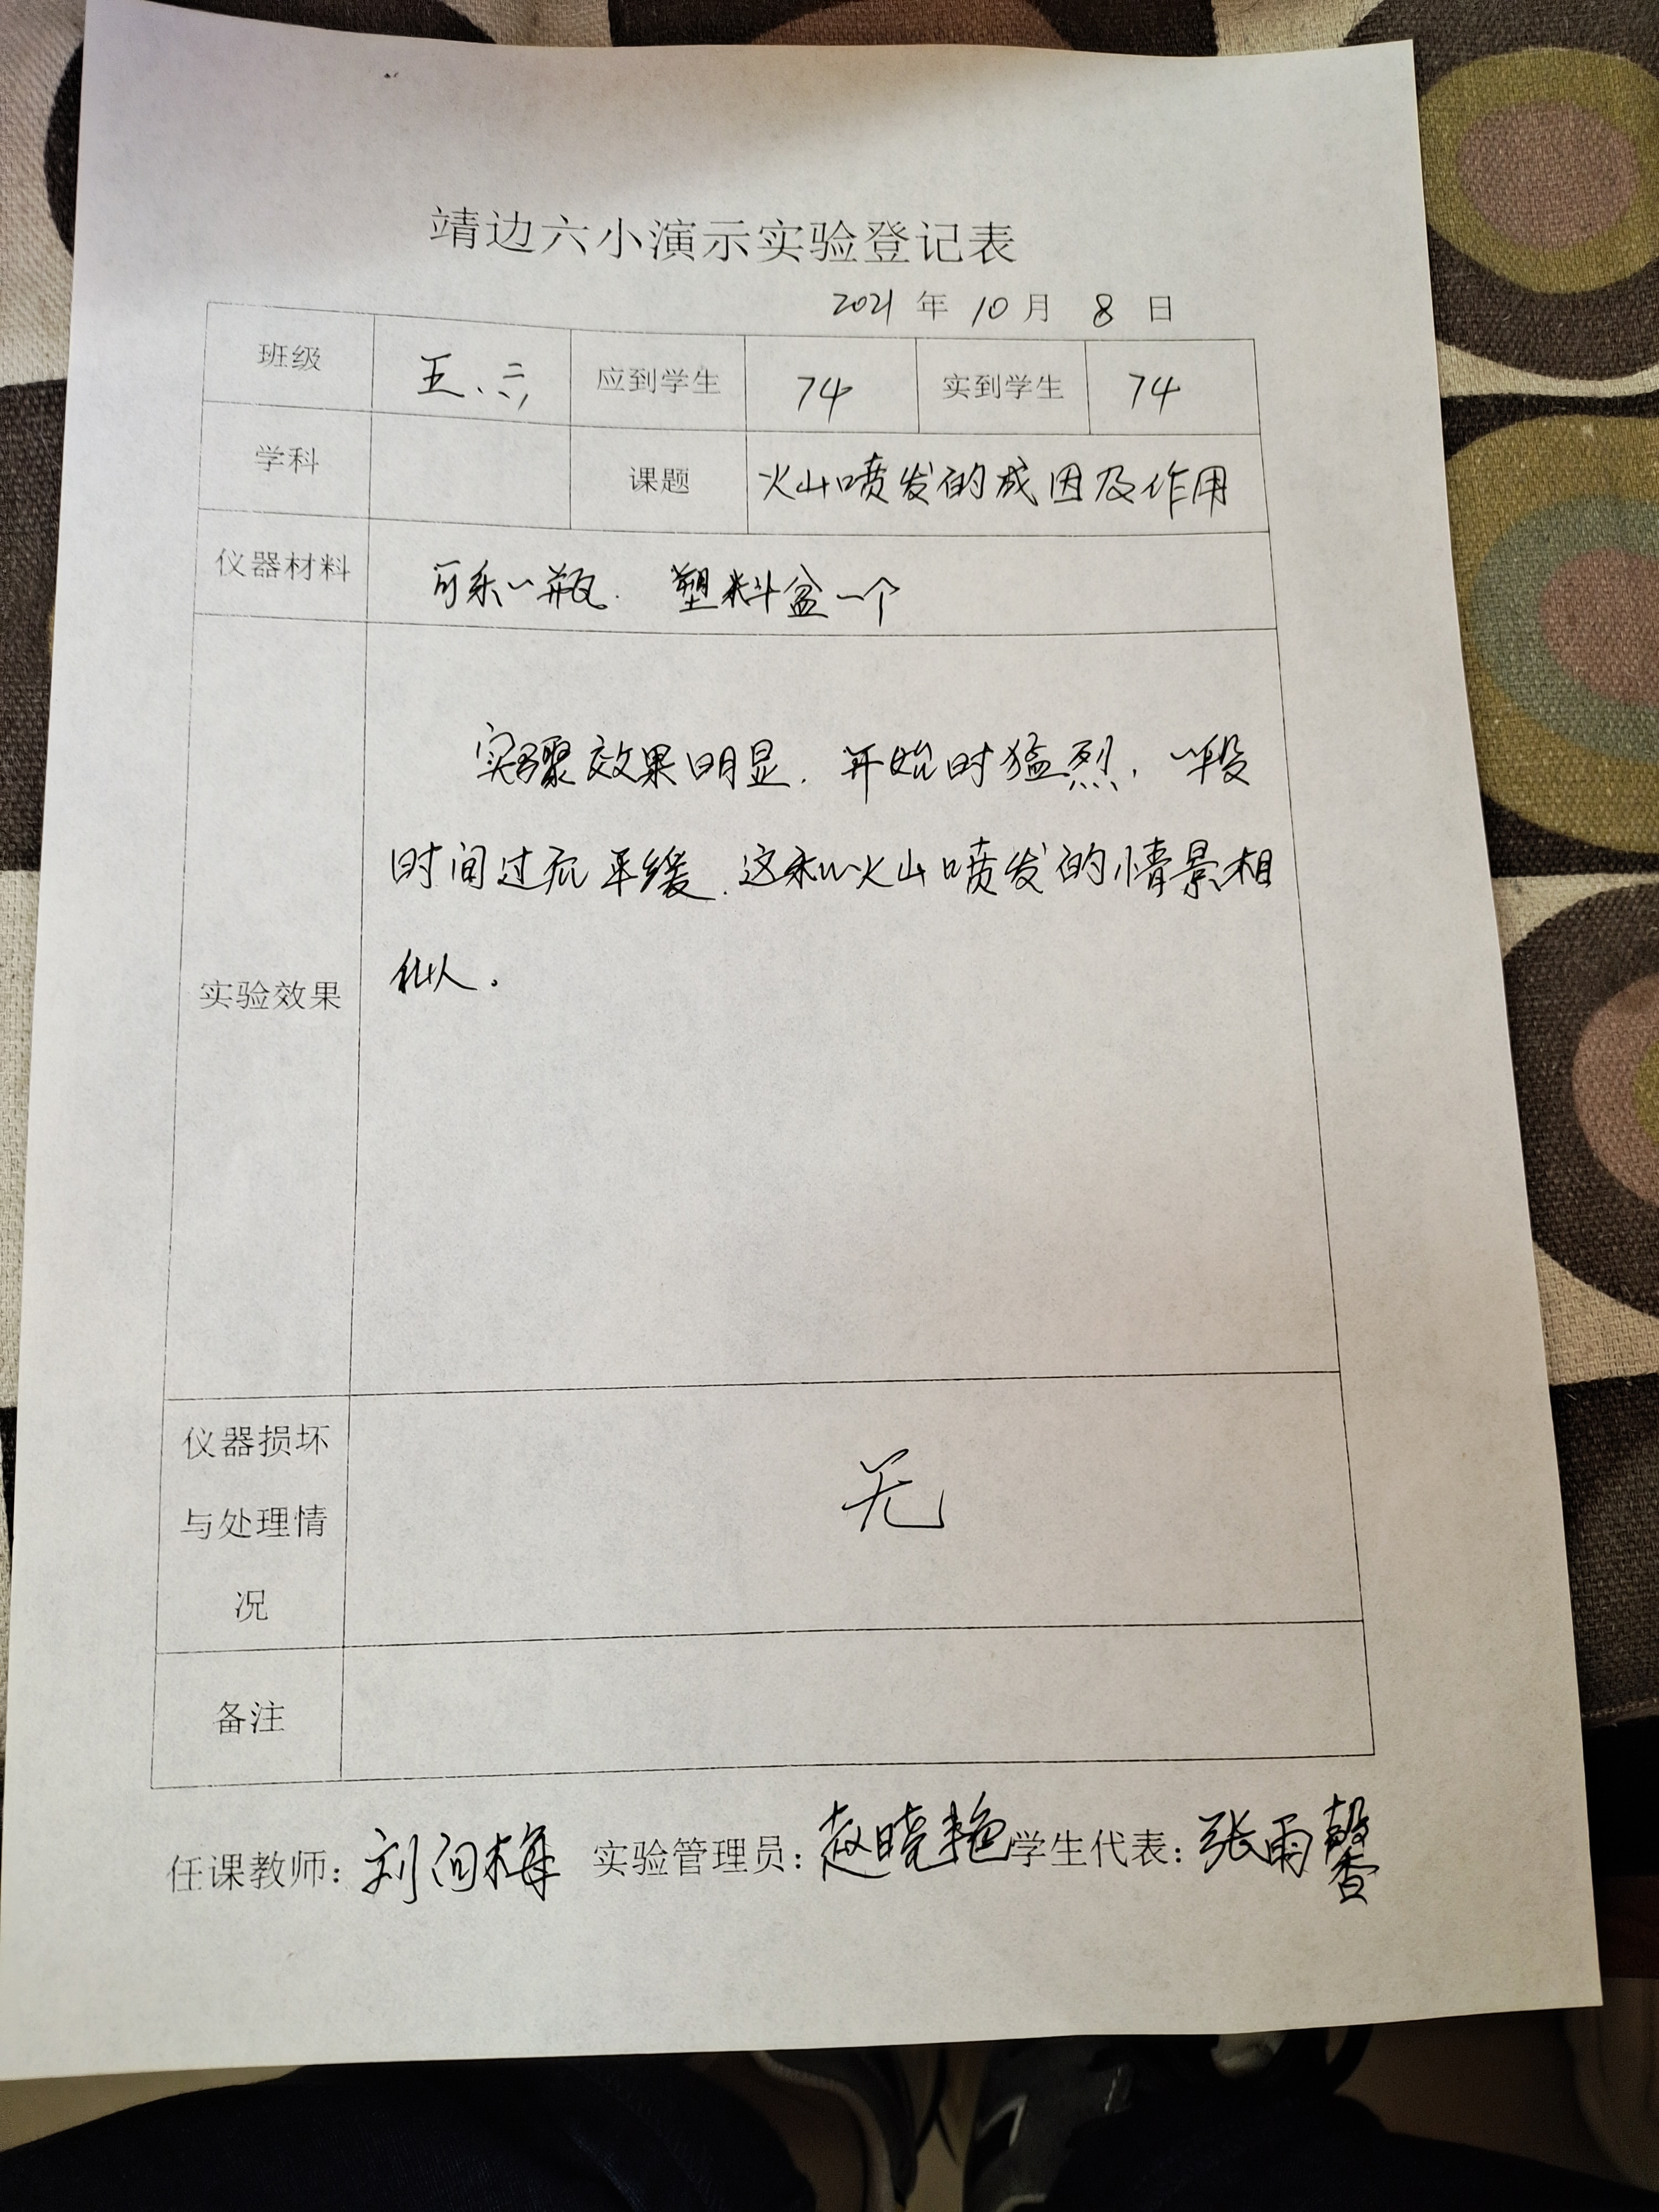 靖边六小演示实验登记表
2021 年 10 月 8 日
班级 五、六 应到学生 74 实到学生 74
学科 课题 火山喷发的成因及作用
仪器材料 可乐一瓶. 塑料盆一个
实验效果
实骤效果明显. 开始时猛烈, 一段
时间过后平缓. 这和火山喷发的情景相
似.
仪器损坏
与处理情
况
无
备注
任课教师: 刘向梅 实验管理员: 赵晓艳 学生代表: 张雨馨